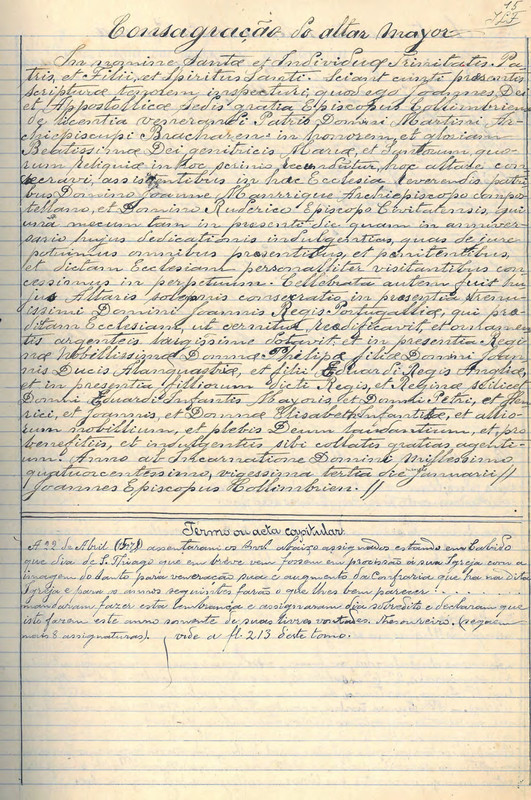 15
Consagração do altar mayor
In nomine Santæ et Individuæ Trinitatis. Pa-
tris, et Filii, et Spiritus Sancti. Sciant cuncti præsentis
scripturæ tenorem inspecturi, quod ego Joannes, Dei
et Appostollicæ sedis gratia Episcopus Collimbrien
de licentia venerandi Patris Domini Martini Ar-
chiepiscupi Bracharense in honorem, et gloriam
Beatissimæ Dei genitricis Mariæ, et Sanctorum, quo-
rum reliquiæ in hoc scrinio reconduntur, hoc altare con-
secravi, assistentibus in hac Ecclesiæ reverendis patri
bus Domino Joanne Manrrique Archiepiscopo compo-
tellano, et Domino Ruderico Episcopo Civitatensis, qui
unà mecum tam in presenti die quam in anniver-
sario hujus dedicationis indulgentias, quas de jure
potuimus omnibus præsentibus, et pænitentibus,
et dictam Ecclesiam personalliter visitantibus con-
cessimus in perpetuum. Cellebrata autem fuit hu-
jus Altaris solepnis consecratio in præsentia strenu-
issimi Domini Joannis Regis Portugalliæ, qui præ-
dictam Ecclesiam, ut cernitur, reædificavit, et ornamen-
tis argenteis largissime dotavit, et in præsentia Regi-
næ nobillissimæ Domnæ Philipæ filiæ Domini Joan-
nis Ducis Alanquastræ, et filii Eduardi Regis Angliæ,
et in presentia filliorum dicti Regis, et Reginæ scilicet
Domni Eduardi Infantis Mayoris, et Domni Petri, et Hen-
rici, et Joannis, et Domnæ Elisabeth Infantiæ, et allio-
rum nobillium, et plebis Deum laudantium, et pro
benefitiis, et indulgentiis sibi collatis gratias agenti-
um. Anno ab Incarnatione Domini millessimo
quatuorcentessimo, vigessima tertia die mensis Januarii //
Joannes Episcopus Collimbrien. //
Termo ou acta capitular
A 22 de Abril assentaram os Snrs. abaixo assignados estando em Cabido
que dia de S. Thiago que em breve vem fossem em procissão á sua Igreja com a
imagem do Santo para veneração sua e augmento da Confraria que ha na dita
Igreja e para os annos seguintes farão o que lhes bem parecer:
mandaram fazer esta lembrança e assignaram dia sobredito e declaram que
isto fazem este anno somente de suas livres vontades. Thesoureiro. (seguem
mais 8 assignaturas). vide a fl 213 d'este tomo.